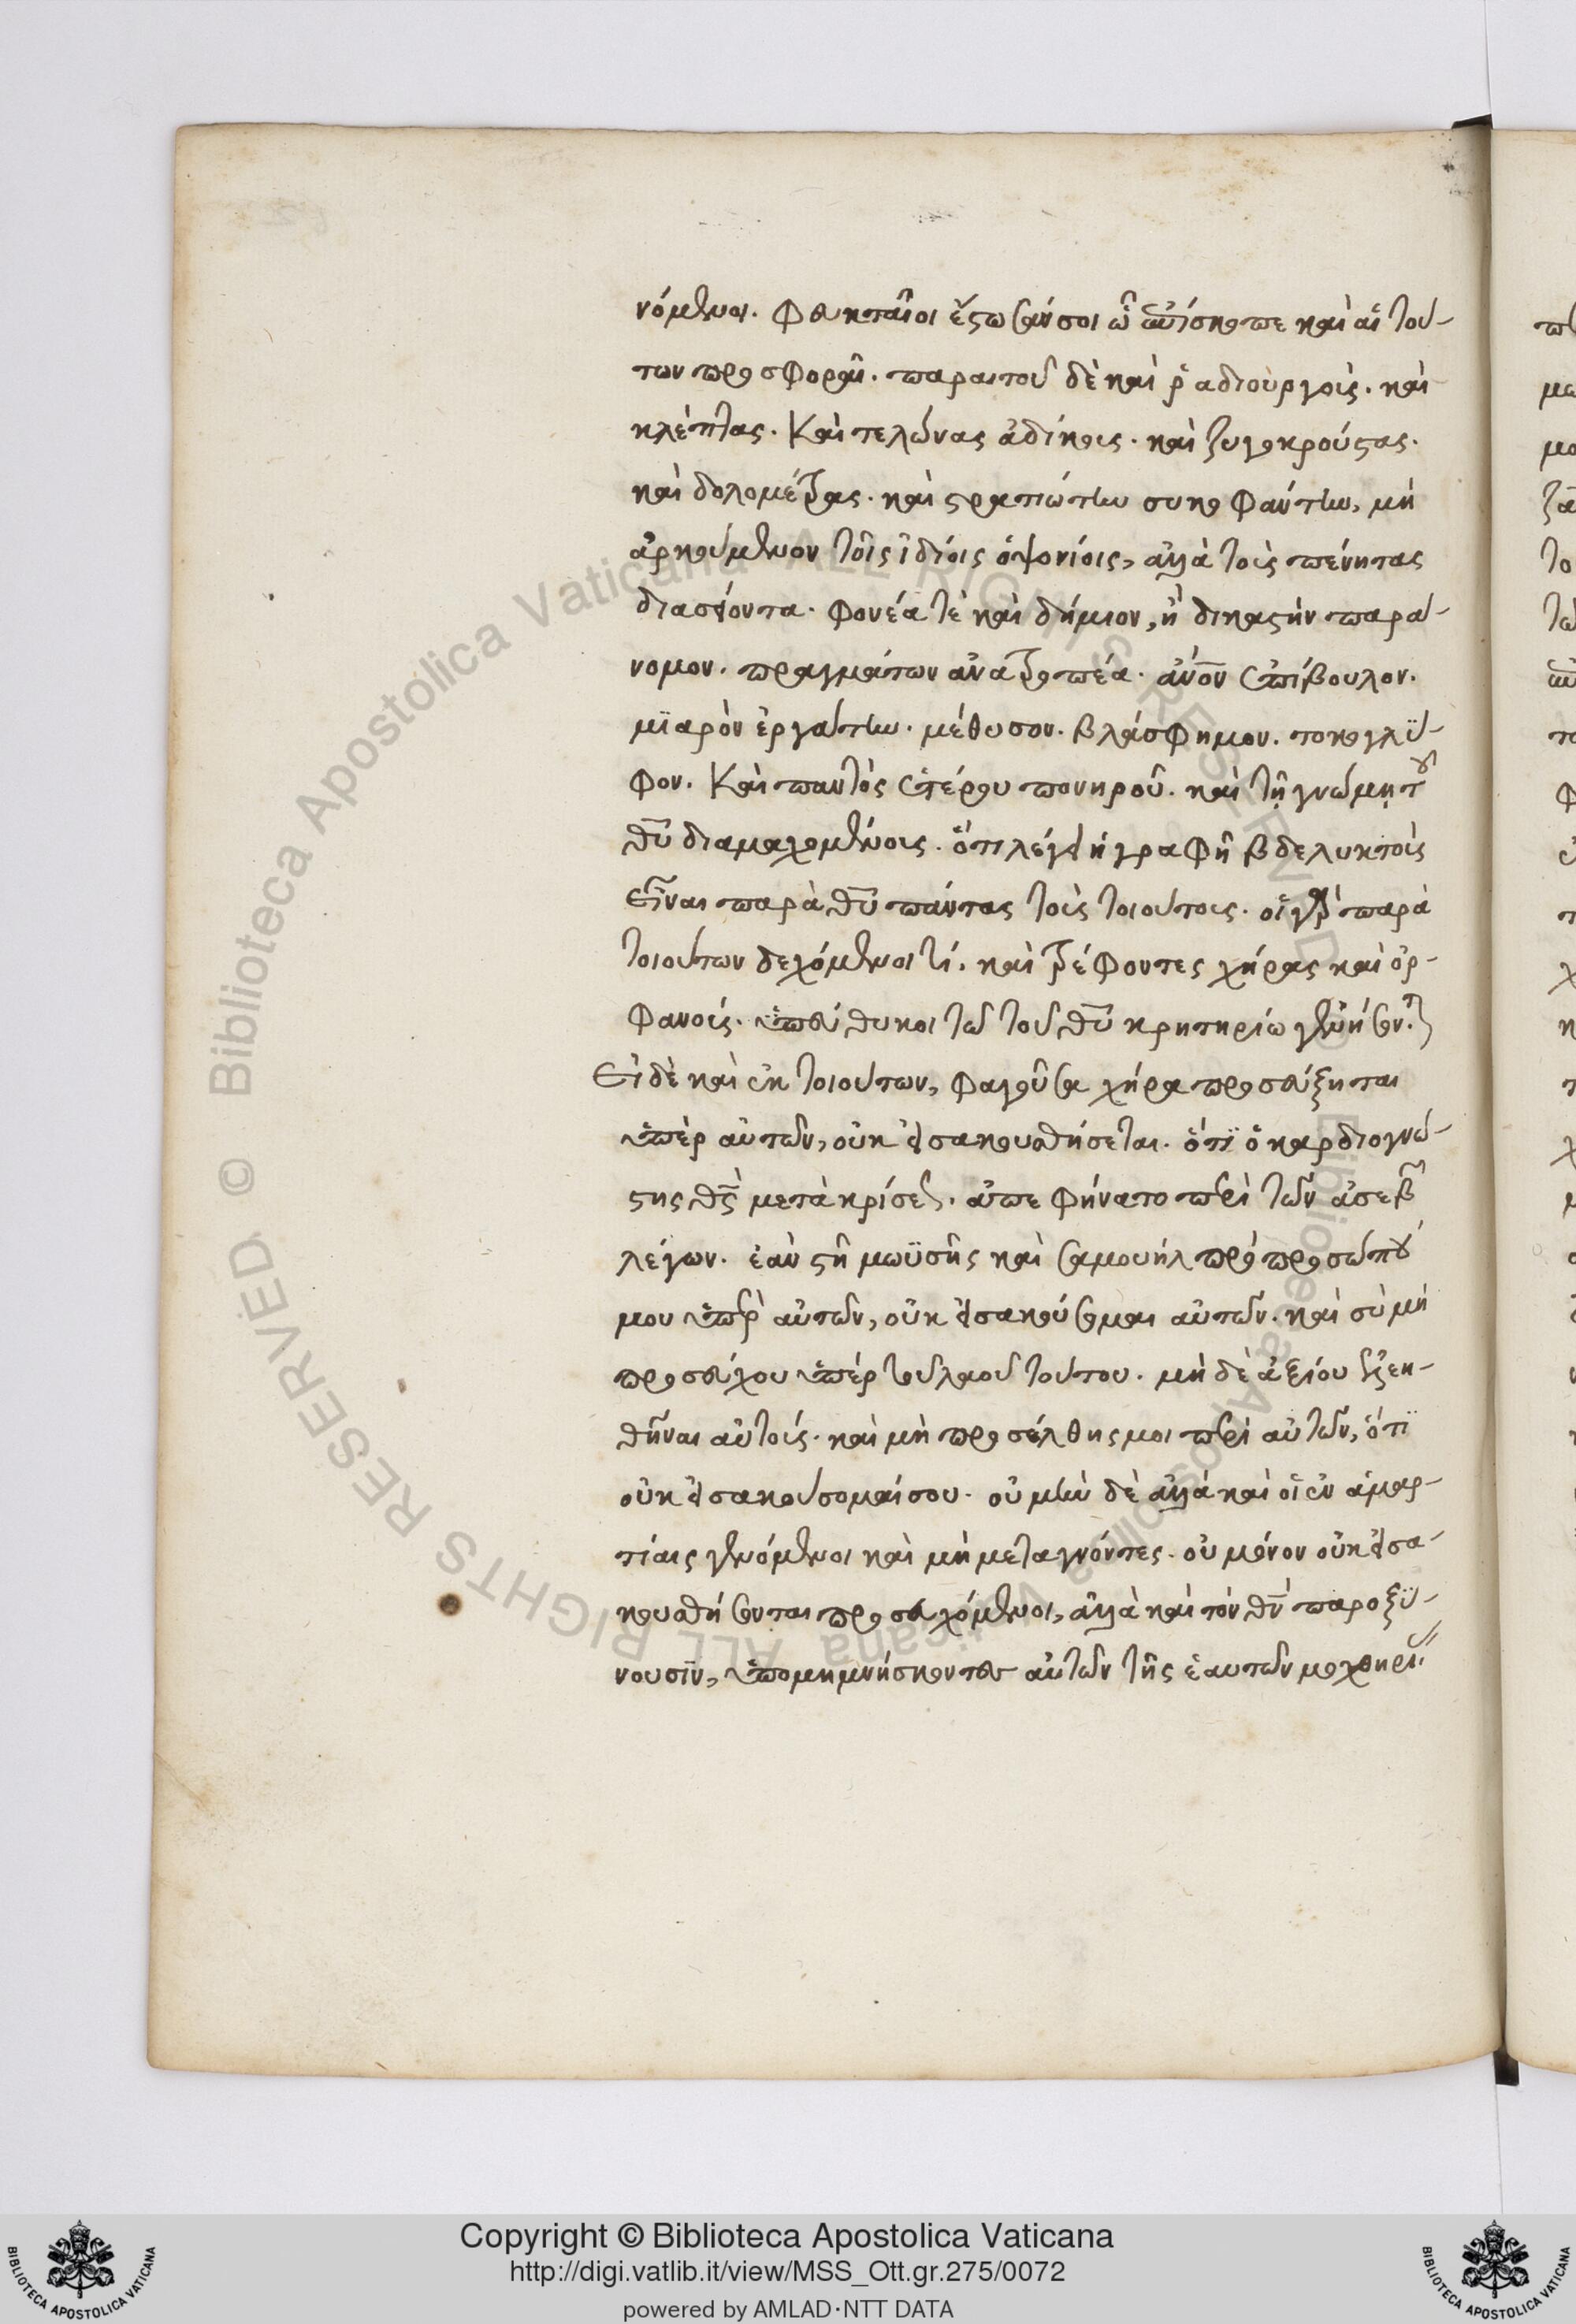 νόμενοι. φευκταῖοι ἔστωσάν σοι ὦ ἐπίσκοπε καὶ αἱ τού-
των προσφοραί. παραιτοῦ δὲ καὶ ῥαδιουργοὺς. καὶ
κλέπτας. Καὶ τελώνας ἀδίκους. καὶ ζυγοκρούστας.
καὶ δολομέτρας. καὶ στρατιώτην συκοφάντην, μὴ
ἀρκούμενον τοῖς ἰδίοις ὀψονίοις, ἀλλὰ τοὺς πένητας
διασείοντα. φονέα τὲ καὶ δήμιον, ἢ δικαστὴν παρά-
νομον. πραγμάτων ἀνατροπέα. ἀνον ἐπίβουλον.
μϊαρὸν ἐργάτην. μέθυσον. βλάσφημον. τοκογλύ-
φον. Καὶ παντὸς ἑτέρου πονηροῦ. καὶ τῇ γνώμῃ τοῦ
θυ διαμαχομένους. ὅτι λέγει ἡ γραφὴ βδελυκτοὺς
εἶναι παρὰ θυ πάντας τοὺς τοιούτους. οἱ γὰρ παρὰ
τοιούτων δεχόμενοι τί. καὶ τρέφοντες χήρας καὶ ὀρ-
φανούς. ὑπεύθυνοι τῶ τοῦ θυ κρητηρίω γενήσονται
Εἰ δὲ καὶ ἐκ τοιούτων, φαγοῦσα χήρα προσεύξηται
ὑπὲρ αὐτῶν, οὐκ εἰσακουσθήσεται. ὅτϊ ὁ καρδιογνώ-
στης θς μετὰ κρίσεως. ἀπεφήνατο περὶ τῶν ἀσεβῶν
λέγων. ἐὰν στῆ μωϋσῆς καὶ σαμουὴλ πρὸ προσώπου
μου ὑπὲρ αὐτῶν, οὐκ εἰσακούσομαι αὐτῶν. καὶ σὺ μὴ
προσεύχου ὑπὲρ τοῦ λαοῦ τούτου. μὴ δὲ ἀξίου ἐλεη-
θῆναι αὐτούς. καὶ μὴ προσέλθης μοι περὶ αὐτῶν, ὅτϊ
οὐκ εἰσακούσομαί σου. οὐ μὴν δὲ ἀλλὰ καὶ οἱ ἐν ἁμαρ-
τίαις γενόμενοι καὶ μὴ μεταγνόντες. οὐ μόνον οὐκ εἰσα-
κουσθήσονται προσευχόμενοι, ἀλλὰ καὶ τὸν θν παροξύ-
νουσϊν, ὑπομημνήσκοντες αὐτὸν τῆς ἑαυτῶν μοχθηρίας
Copyright © Biblioteca Apostolica Vaticana
http://digi.vatlib.it/view/MSS_Ott.gr.275/0072
powered by AMLAD·NTT DATA